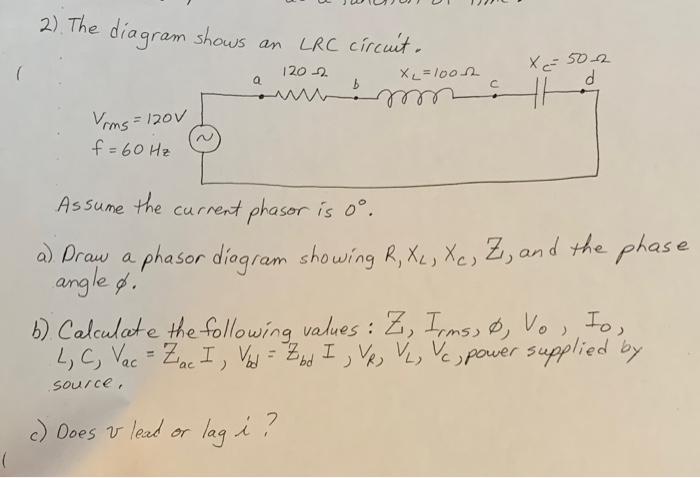 2) The diagram shows an LRC circuit.
a 120 Ω b X_L = 100 Ω c X_C = 50 Ω d
V_rms = 120V
f = 60 Hz
Assume the current phasor is 0°.
a) Draw a phasor diagram showing R, X_L, X_C, Z, and the phase
angle ϕ.
b) Calculate the following values: Z, I_rms, ϕ, V_0, I_0,
L, C, V_ac = Z_ac I, V_bd = Z_bd I, V_R, V_L, V_C, power supplied by
source.
c) Does v lead or lag i?